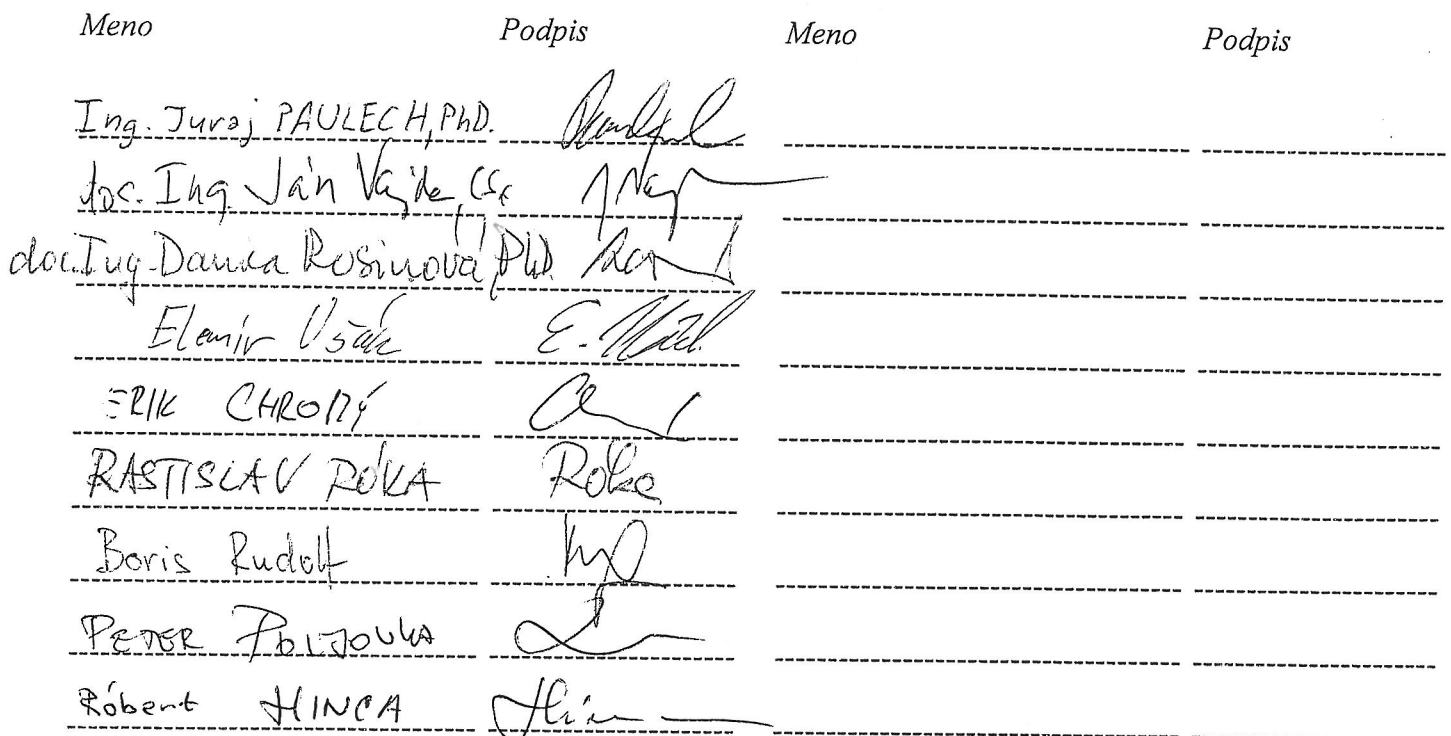 Meno Podpis Meno Podpis
Ing. Juraj PAULECH, PhD.
doc. Ing. Ján Vajda, CSc
doc. Ing. Danica Rosinová, PhD.
Elemír Ušák E. Ušák
ERIK CHROMÝ
RASTISLAV RÓKA Róka
Boris Rudolf
PETER POLJOVKA
Róbert HINCA